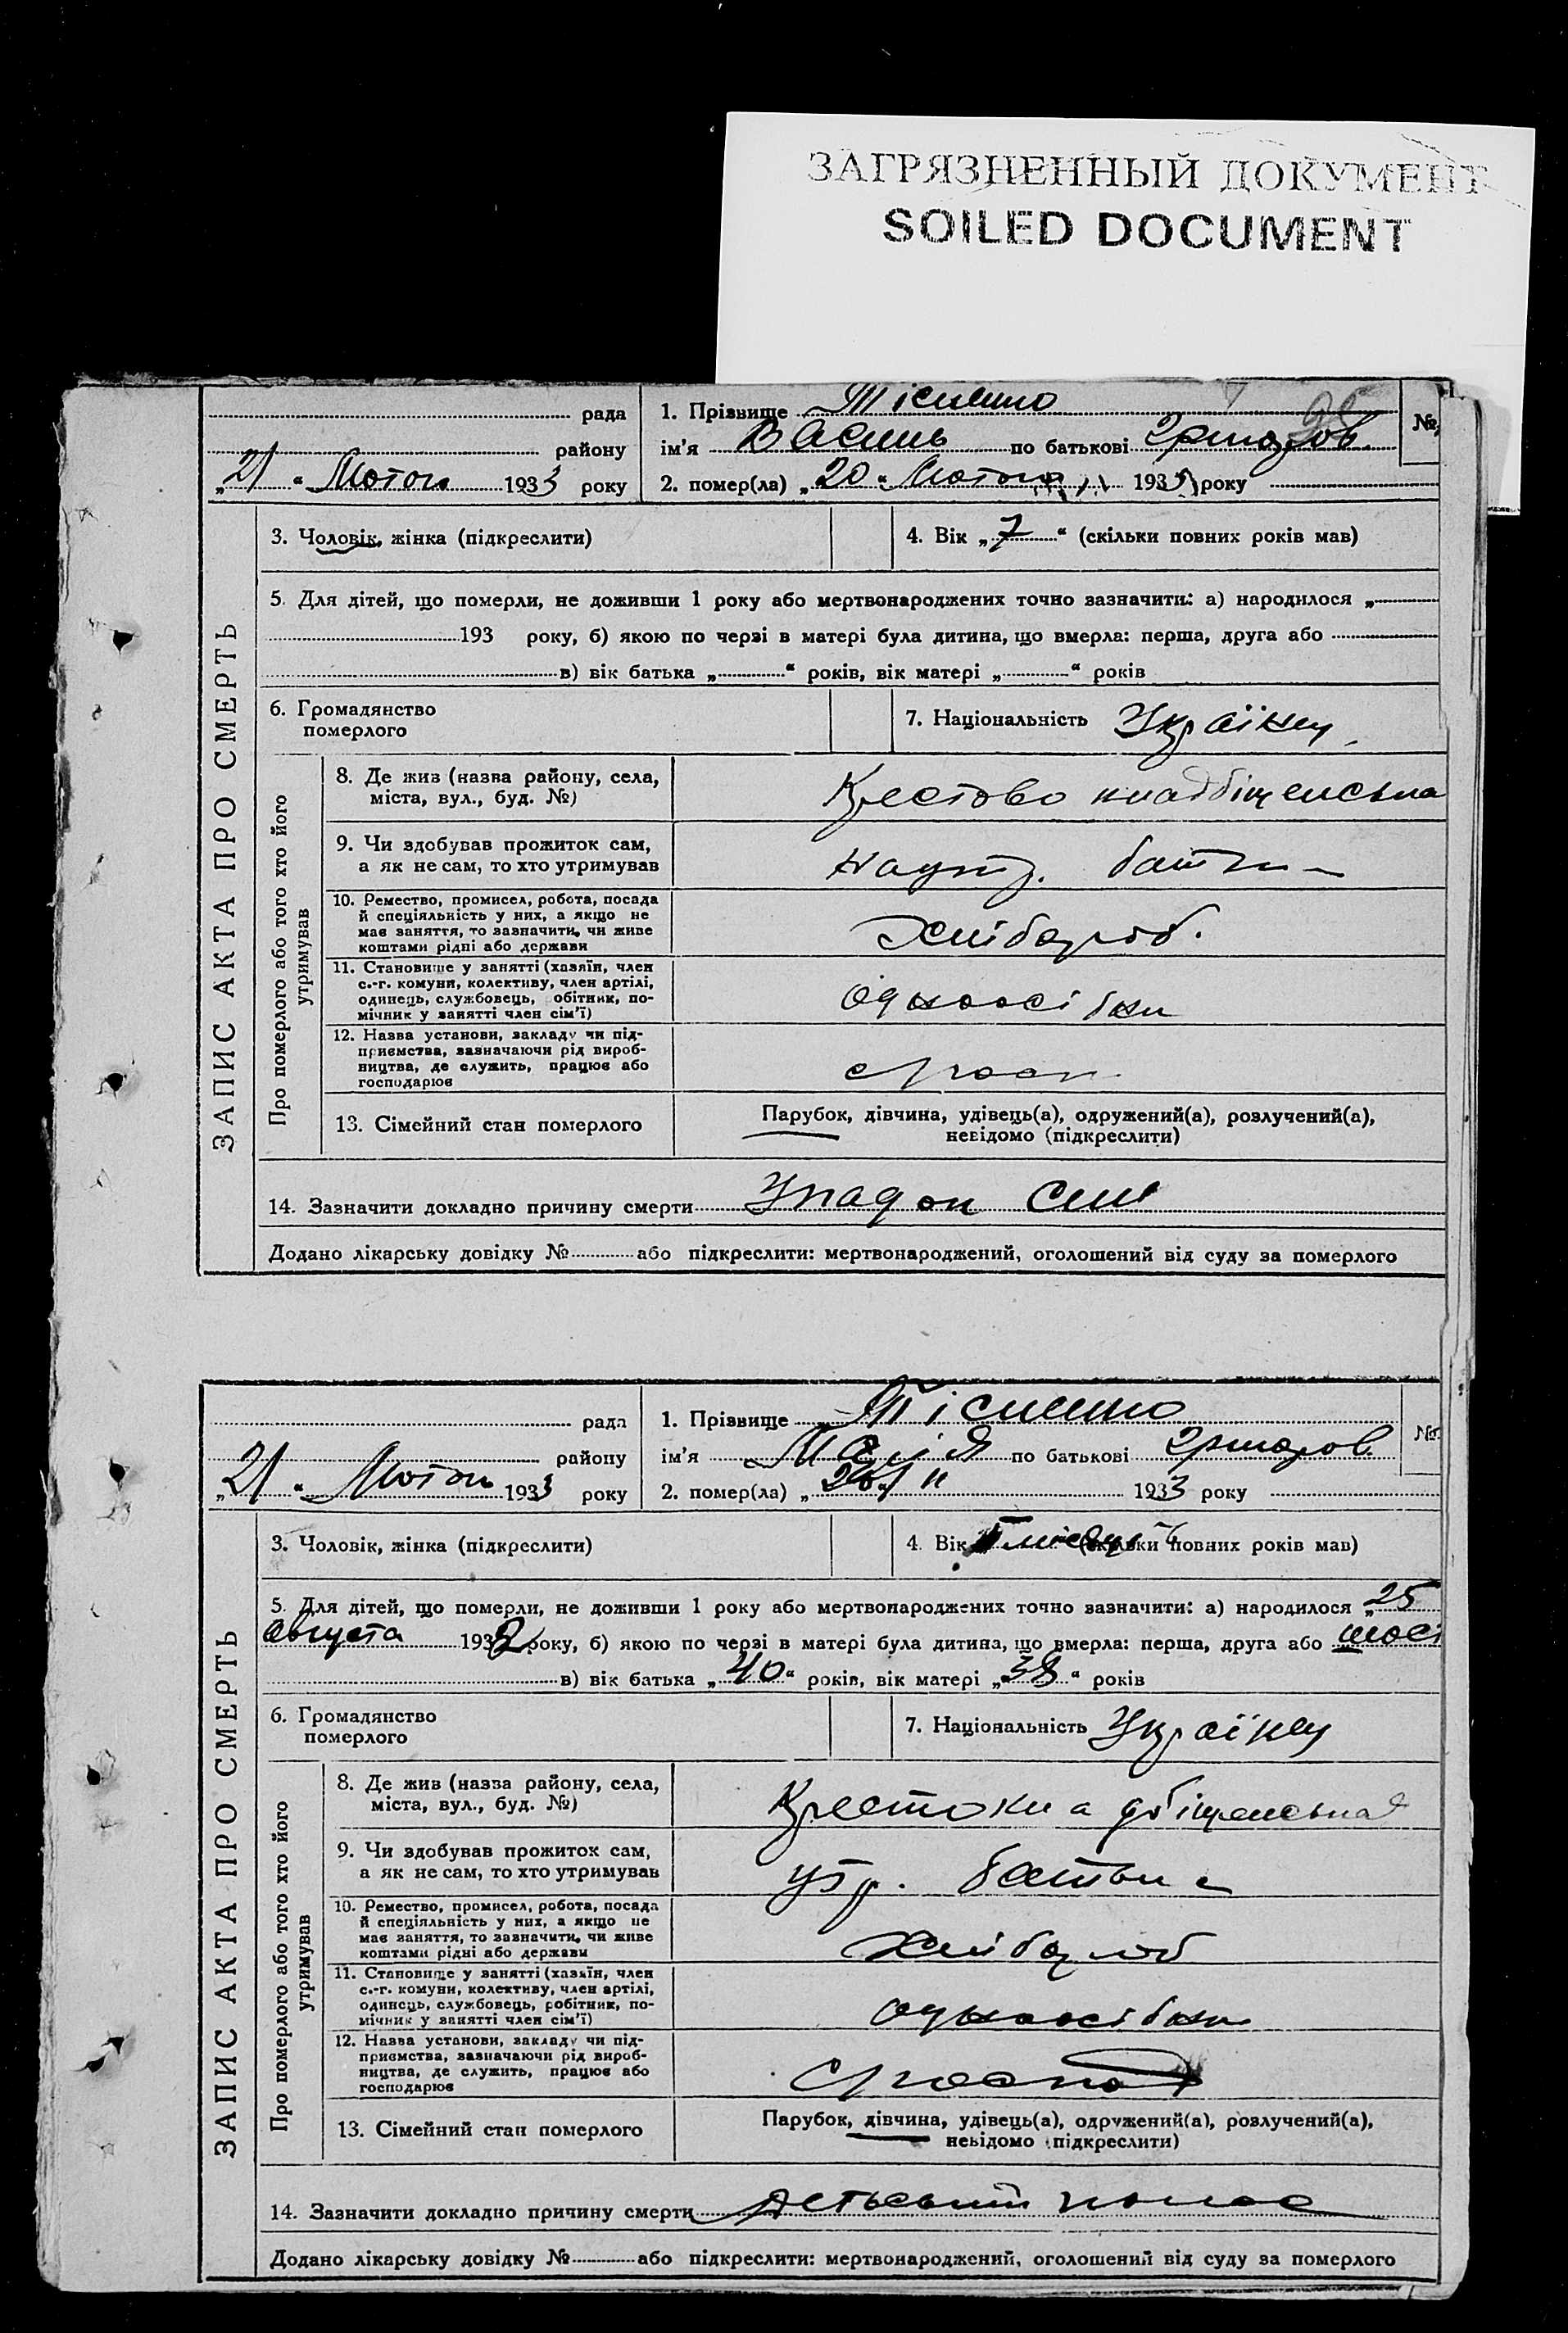 ЗАГРЯЗНЕННЫЙ ДОКУМЕНТ
SOILED DOCUMENT
рада
1. Прізвище
№
району
ім’я Василь по батькові
„21“ Лютого 1933 року
2. помер(ла) „20“ Лютого 1933 року
ЗАПИС АКТА ПРО СМЕРТЬ
3. Чоловік, жінка (підкреслити)
4. Вік „7“ (скільки повних років мав)
5. Для дітей, що померли, не доживши 1 року або мертвонароджених точно зазначити: а) народилося „
193 року, б) якою по черзі в матері була дитина, що вмерла: перша, друга або
в) вік батька „ “ років, вік матері „ “ років
6. Громадянство
померлого
7. Національність Україна
Про померлого або того хто його
утримував
8. Де жив (назва району, села,
міста, вул., буд. №)
9. Чи здобував прожиток сам,
а як не сам, то хто утримував
10. Ремество, промисел, робота, посада
й спеціяльність у них, а якщо не
має заняття, то зазначити, чи живе
коштами рідні або держави
Хлібороб.
11. Становище у занятті (хазяїн, член
с.-г. комуни, колективу, член артілі,
одинець, службовець, робітник, по-
мічник у занятті член сім’ї)
одноосібник
12. Назва установи, закладу чи під-
приємства, зазначаючи рід вироб-
ництва, де служить, працює або
господарює
13. Сімейний стан померлого
Парубок, дівчина, удівець(а), одружений(а), розлучений(а),
невідомо (підкреслити)
14. Зазначити докладно причину смерти Упадок сил
Додано лікарську довідку № або підкреслити: мертвонароджений, оголошений від суду за померлого
рада
1. Прізвище
№
району
ім’я по батькові
„21“ Лютого 1933 року
2. помер(ла) „ 1933 року
ЗАПИС АКТА ПРО СМЕРТЬ
3. Чоловік, жінка (підкреслити)
4. Вік (скільки повних років мав)
5. Для дітей, що померли, не доживши 1 року або мертвонароджених точно зазначити: а) народилося „25
Августа 1932 року, б) якою по черзі в матері була дитина, що вмерла: перша, друга або шост
в) вік батька „40“ років, вік матері „38“ років
6. Громадянство
померлого
7. Національність Україна
Про померлого або того хто його
утримував
8. Де жив (назва району, села,
міста, вул., буд. №)
9. Чи здобував прожиток сам,
а як не сам, то хто утримував
утр. батька
10. Ремество, промисел, робота, посада
й спеціяльність у них, а якщо не
має заняття, то зазначити, чи живе
коштами рідні або держави
Хлібороб
11. Становище у занятті (хазяїн, член
с.-г. комуни, колективу, член артілі,
одинець, службовець, робітник, по-
мічник у занятті член сім’ї)
одноосібник
12. Назва установи, закладу чи під-
приємства, зазначаючи рід вироб-
ництва, де служить, працює або
господарює
13. Сімейний стан померлого
Парубок, дівчина, удівець(а), одружений(а), розлучений(а),
невідомо (підкреслити)
14. Зазначити докладно причину смерти
Додано лікарську довідку № або підкреслити: мертвонароджений, оголошений від суду за померлого